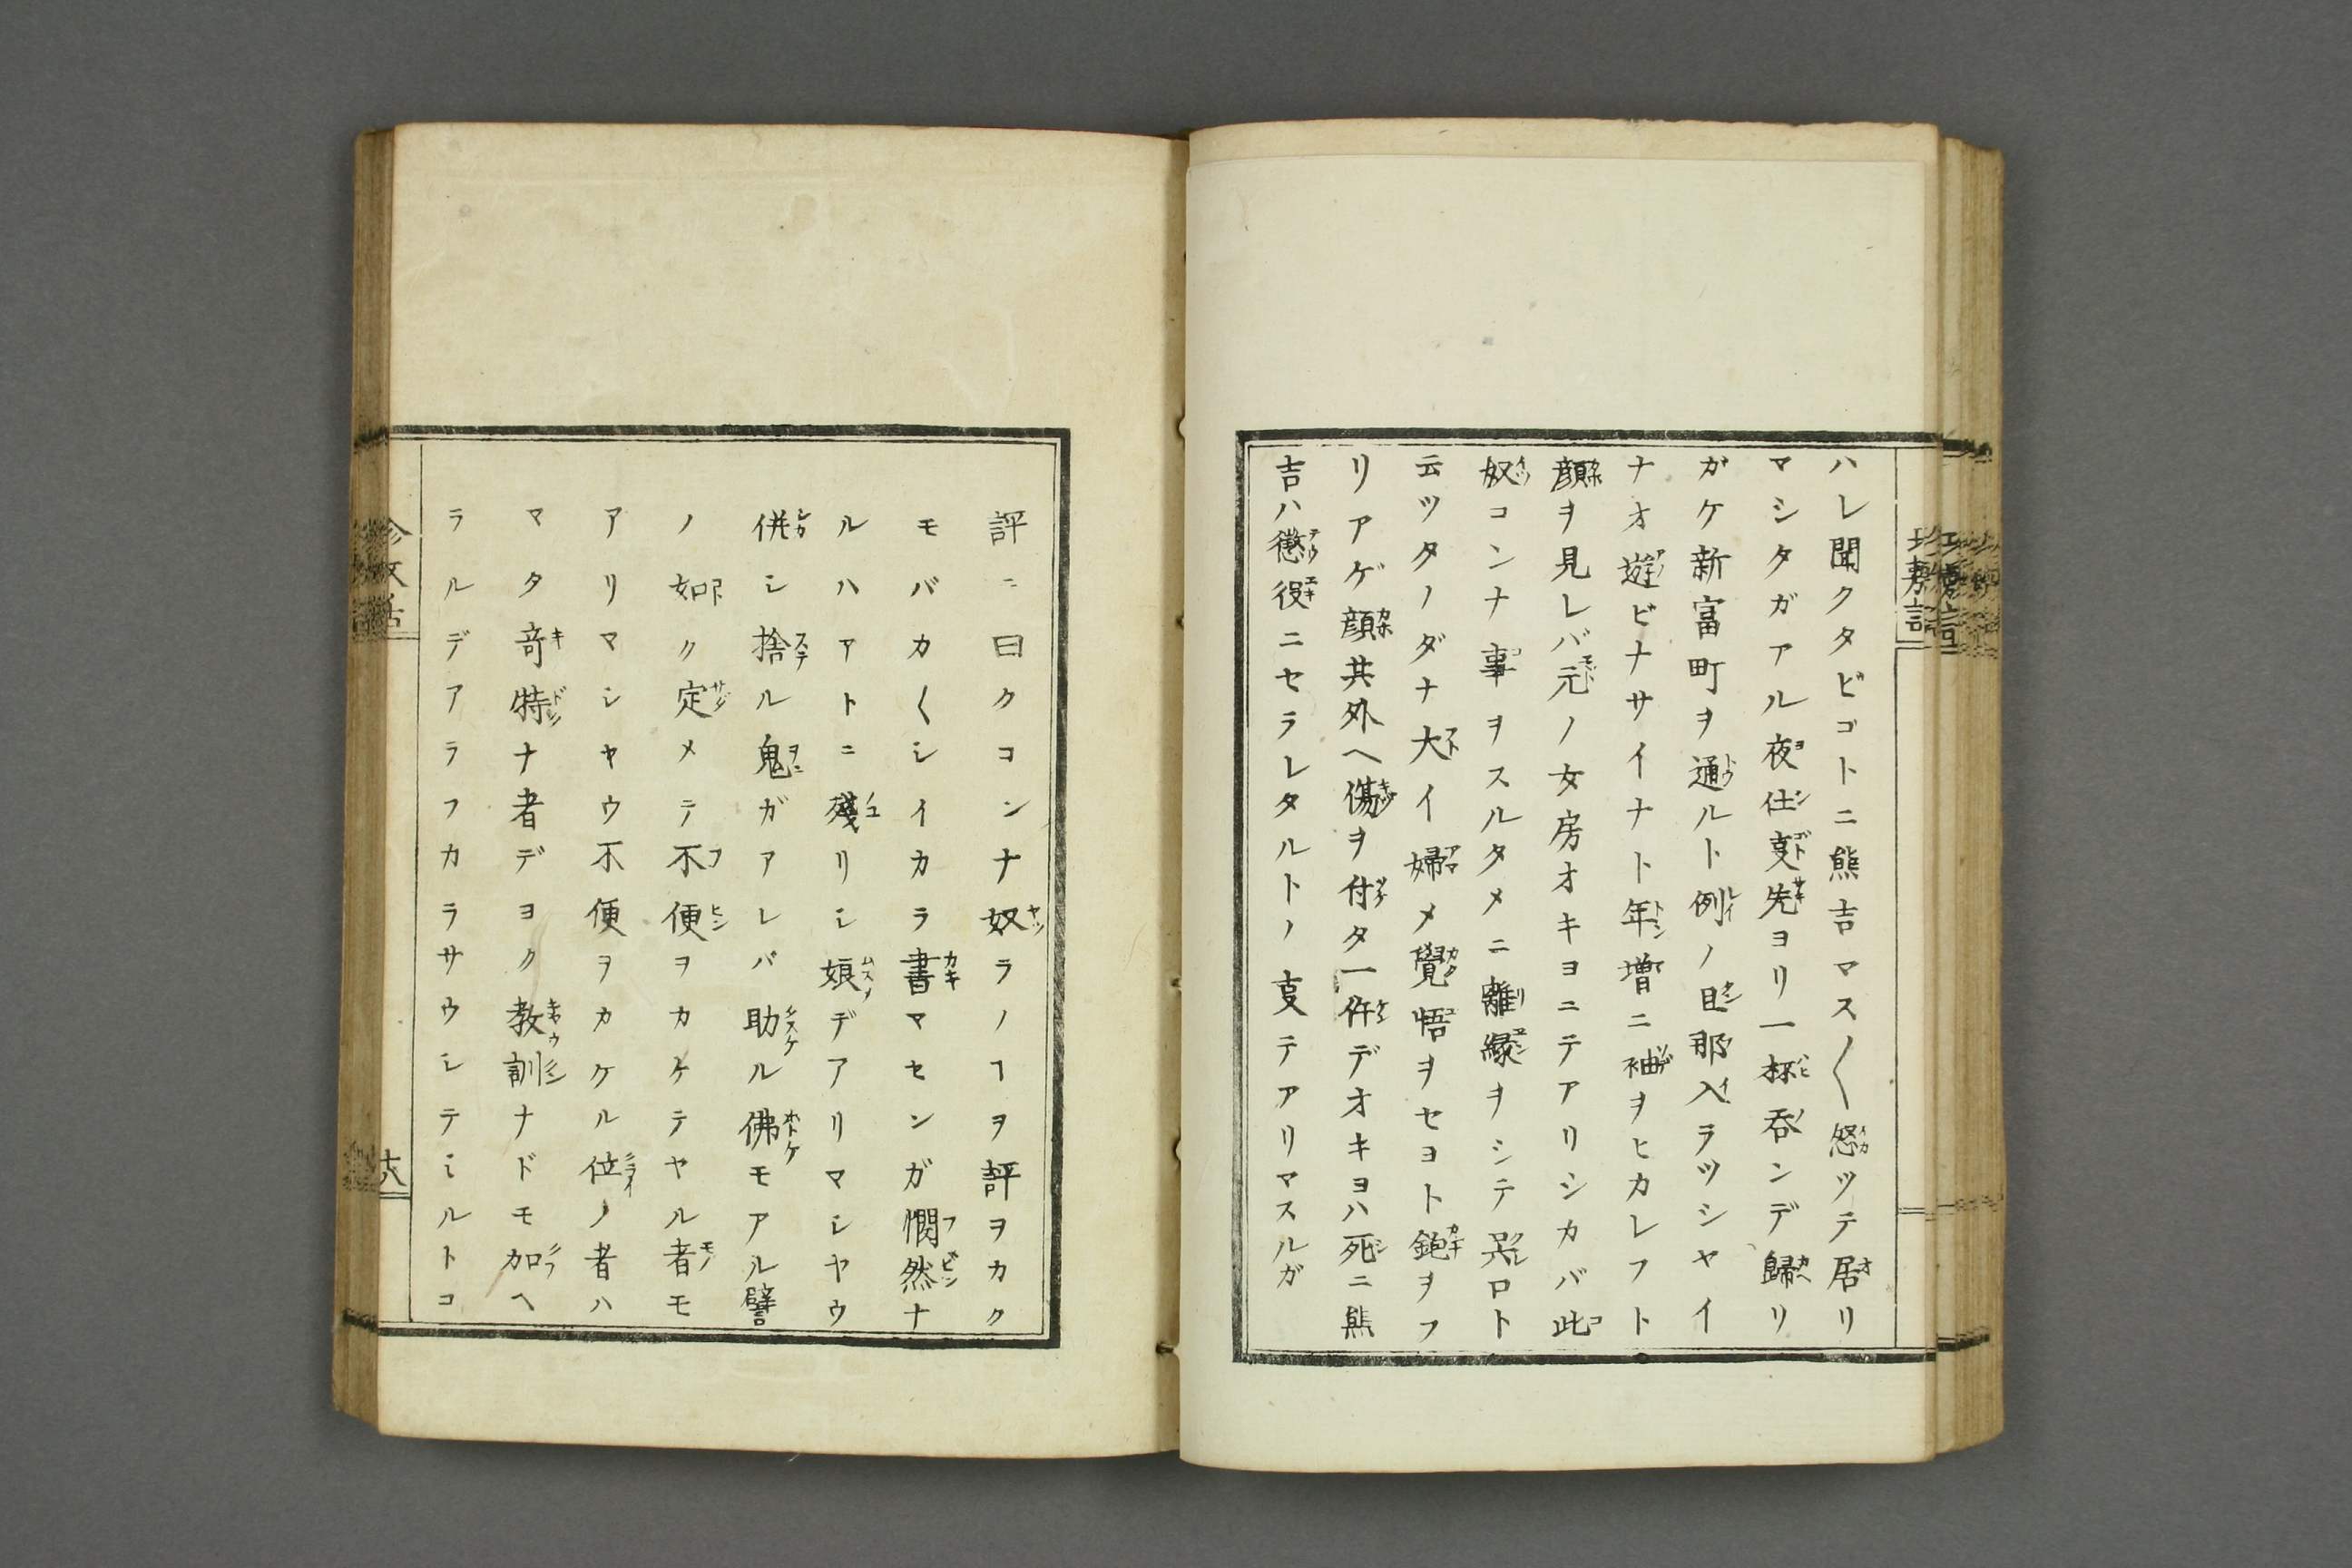 ハレ聞クタビゴトニ熊吉マス〱怒ツテ居リ
マシタガアル夜仕叓先ヨリ一杯呑ンデ歸リ
ガケ新富町ヲ通ルト例ノ旦那入ラツシヤイ
ナオ遊ビナサイナト年増ニ袖ヲヒカレフト
顔ヲ見レバ元ノ女房オキヨニテアリシカバ此
奴コンナ事ヲスルタメニ離縁ヲシテ呉ロト
云ツタノダナ大イ婦メ覺悟ヲセヨト鉋ヲフ
リアゲ顔其外ヘ傷ヲ付タ一件デオキヨハ死ニ熊
吉ハ懲役ニセラレタルトノ叓テアリマスルガ
評ニ曰クコンナ奴ラノヿヲ評ヲカク
モバカ〱シイカラ書マセンガ憫然ナ
ルハアトニ殘リシ娘デアリマシヤウ
併シ捨ル鬼ガアレバ助ル佛モアル譬
ノ如ク定メテ不便ヲカケテヤル者モ
アリマシヤウ不便ヲカケル位ノ者ハ
マタ竒特ナ者デヨク教訓ナドモ加ヘ
ラルデアラフカラサウシテミルトコ
十八